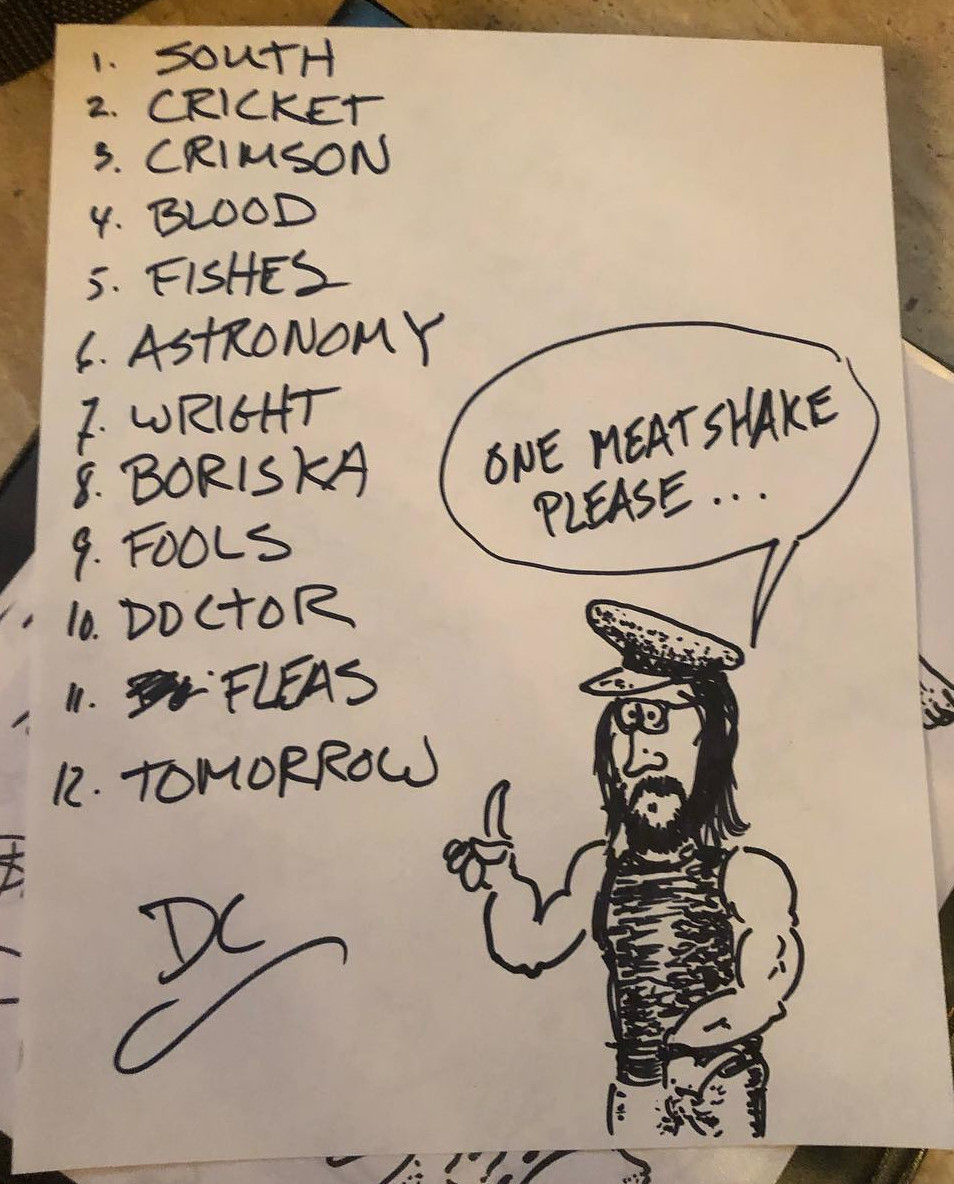 1. SOUTH
2. CRICKET
3. CRIMSON
4. BLOOD
5. FISHES
6. ASTRONOMY
7. WRIGHT
8. BORISKA
9. FOOLS
10. DOCTOR
11. FLEAS
12. TOMORROW
ONE MEATSHAKE
PLEASE...
DC